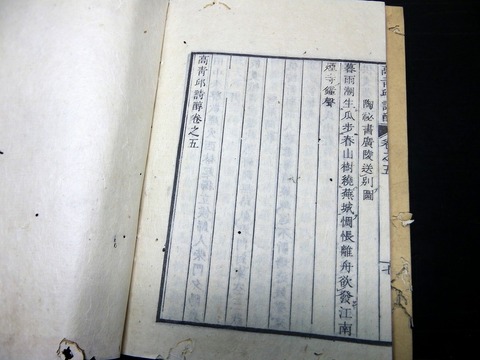 高青邱詩醇 卷之五
陶秘書廣陵送別圖
暮雨潮生瓜步春山樹繞蕪城惆悵離舟欲發江南
煙寺鐘聲
高青邱詩醇卷之五